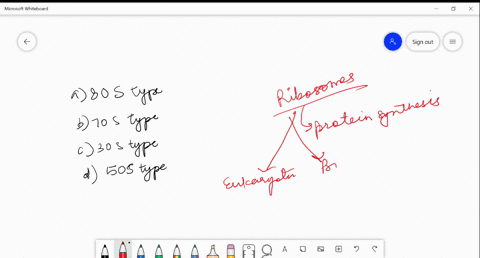 Microsoft Whiteboard
Sign out
a) 80 S type
b) 70 S type
c) 30 S type
d) 50S type
Ribosomes
protein synthesis
Eukaryotic
Pr
A